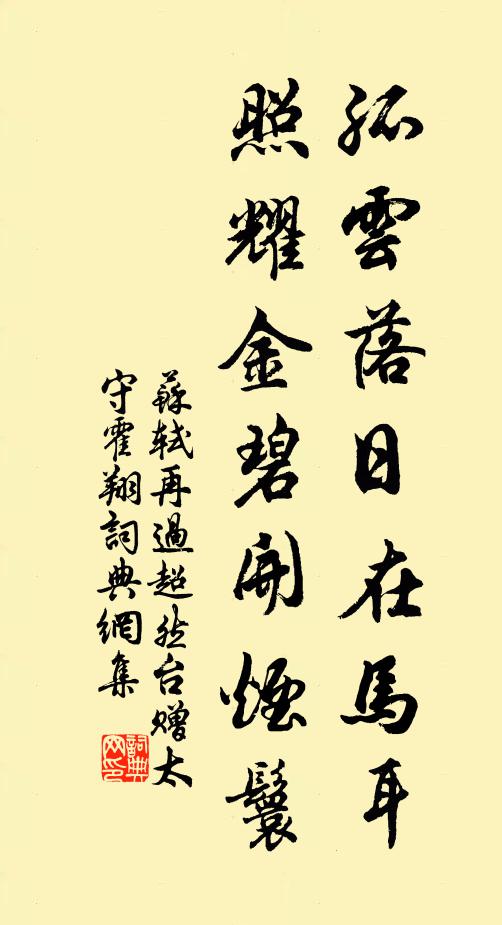 孤雲落日在馬耳
照耀金碧開煙鬟
蘇軾再過超然台赠太
守霍翔詞典網集
詞典
网印